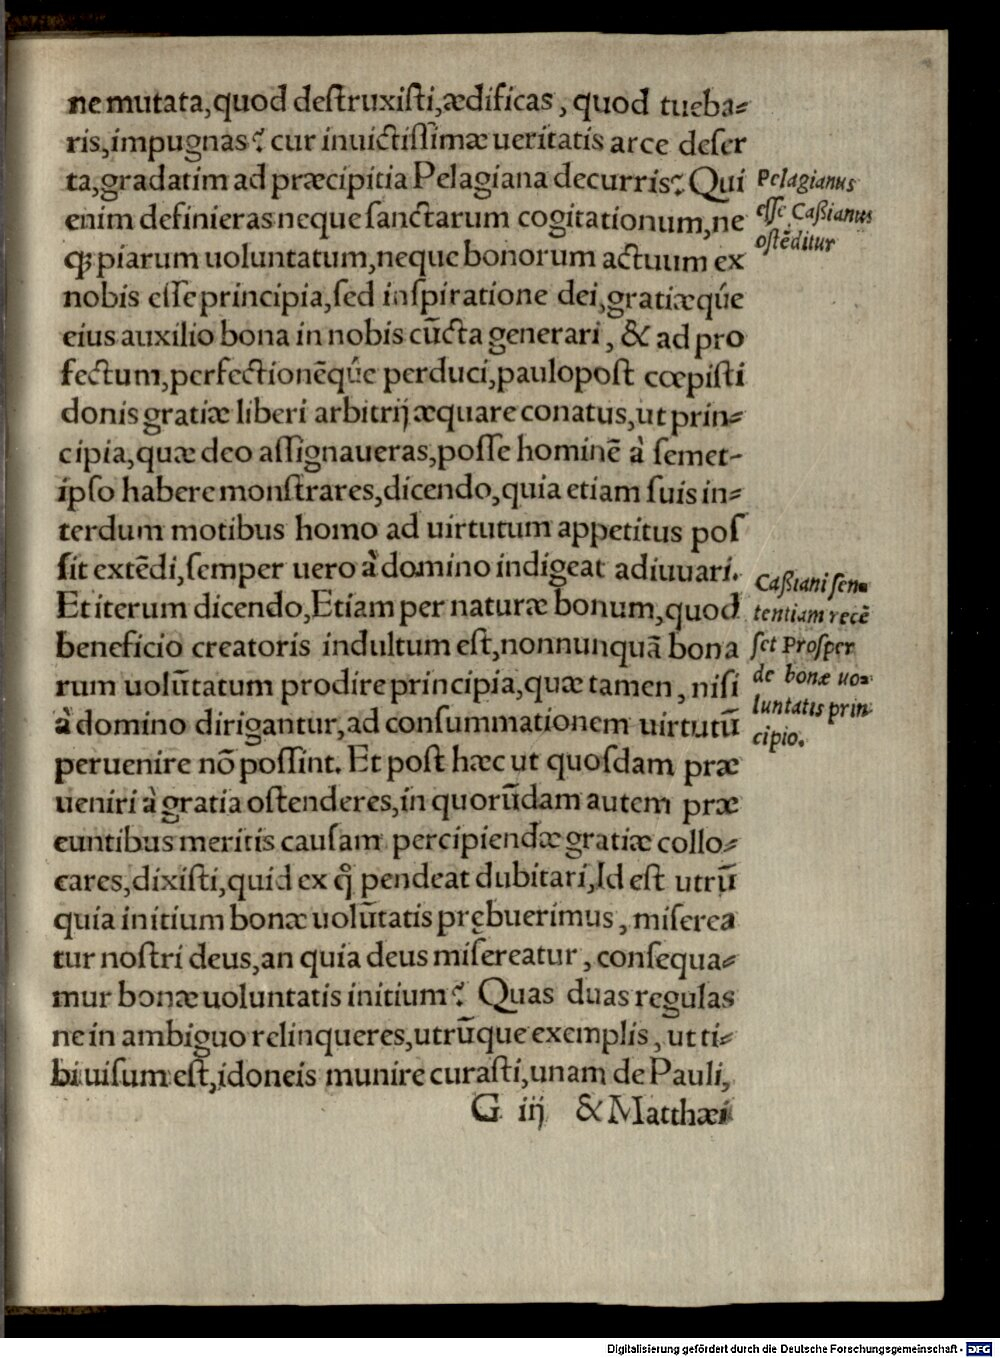 ne mutata, quod deſtruxiſti, ædificas, quod tueba⸗
ris, impugnas? cur inuictiſſimæ ueritatis arce deſer
ta, gradatim ad præcipitia Pelagiana decurris? Qui
enim definieras neque ſanctarum cogitationum, ne
cꝫ piarum uoluntatum, neque bonorum actuum ex
nobis eſſe principia, ſed inſpiratione dei, gratiæqúe
eius auxilio bona in nobis cūcta generari, & ad pro
fectum, perfectionēqúe perduci, paulopoſt cœpiſti
donis gratiæ liberi arbitrij æquare conatus, ut prin⸗
cipia, quæ deo aſſignaueras, poſſe hominē à ſemet-
ipſo habere monſtrares, dicendo, quia etiam ſuis in⸗
terdum motibus homo ad uirtutum appetitus poſ
ſit extēdi, ſemper uero à domino indigeat adiuuari.
Et iterum dicendo, Etiam per naturæ bonum, quod
beneficio creatoris indultum eſt, nonnunquā bona
rum uolūtatum prodire principia, quæ tamen, niſi
à domino dirigantur, ad conſummationem uirtutū
peruenire nō poſſint. Et poſt hæc ut quoſdam præ
ueniri à gratia oſtenderes, in quorūdam autem præ
euntibus meritis cauſam percipiendæ gratiæ collo⸗
cares, dixiſti, quid ex q̄ pendeat dubitari, Id eſt utrū
quia initium bonæ uolūtatis prębuerimus, miſerea
tur noſtri deus, an quia deus miſereatur, conſequa⸗
mur bonæ uoluntatis initium? Quas duas regulas
ne in ambiguo relinqueres, utrūque exemplis, ut ti⸗
bi uiſum eſt, idoneis munire curaſti, unam de Pauli,
G iij & Matthæi
Pelagianus
eſſe Caßianus
oſtēditur
Caßiani ſen⸗
tentiam recē
ſet Proſper
de bonæ uo⸗
luntatis prin⸗
cipio.
Digitalisierung gefördert durch die Deutsche Forschungsgemeinschaft - DFG